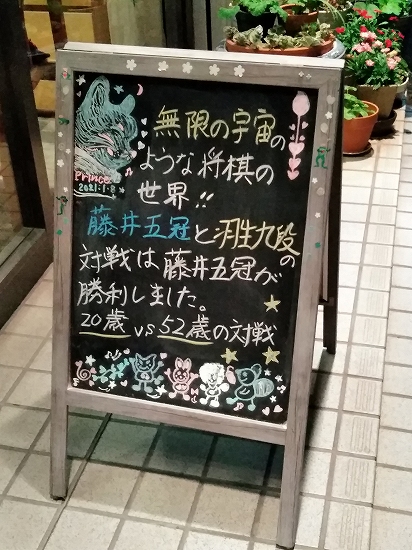 無限の宇宙の
ような将棋の
世界!!
Prince
2021.1.8
藤井五冠と羽生九段の
対戦は藤井五冠が
勝利しました。
20歳vs52歳の対戦